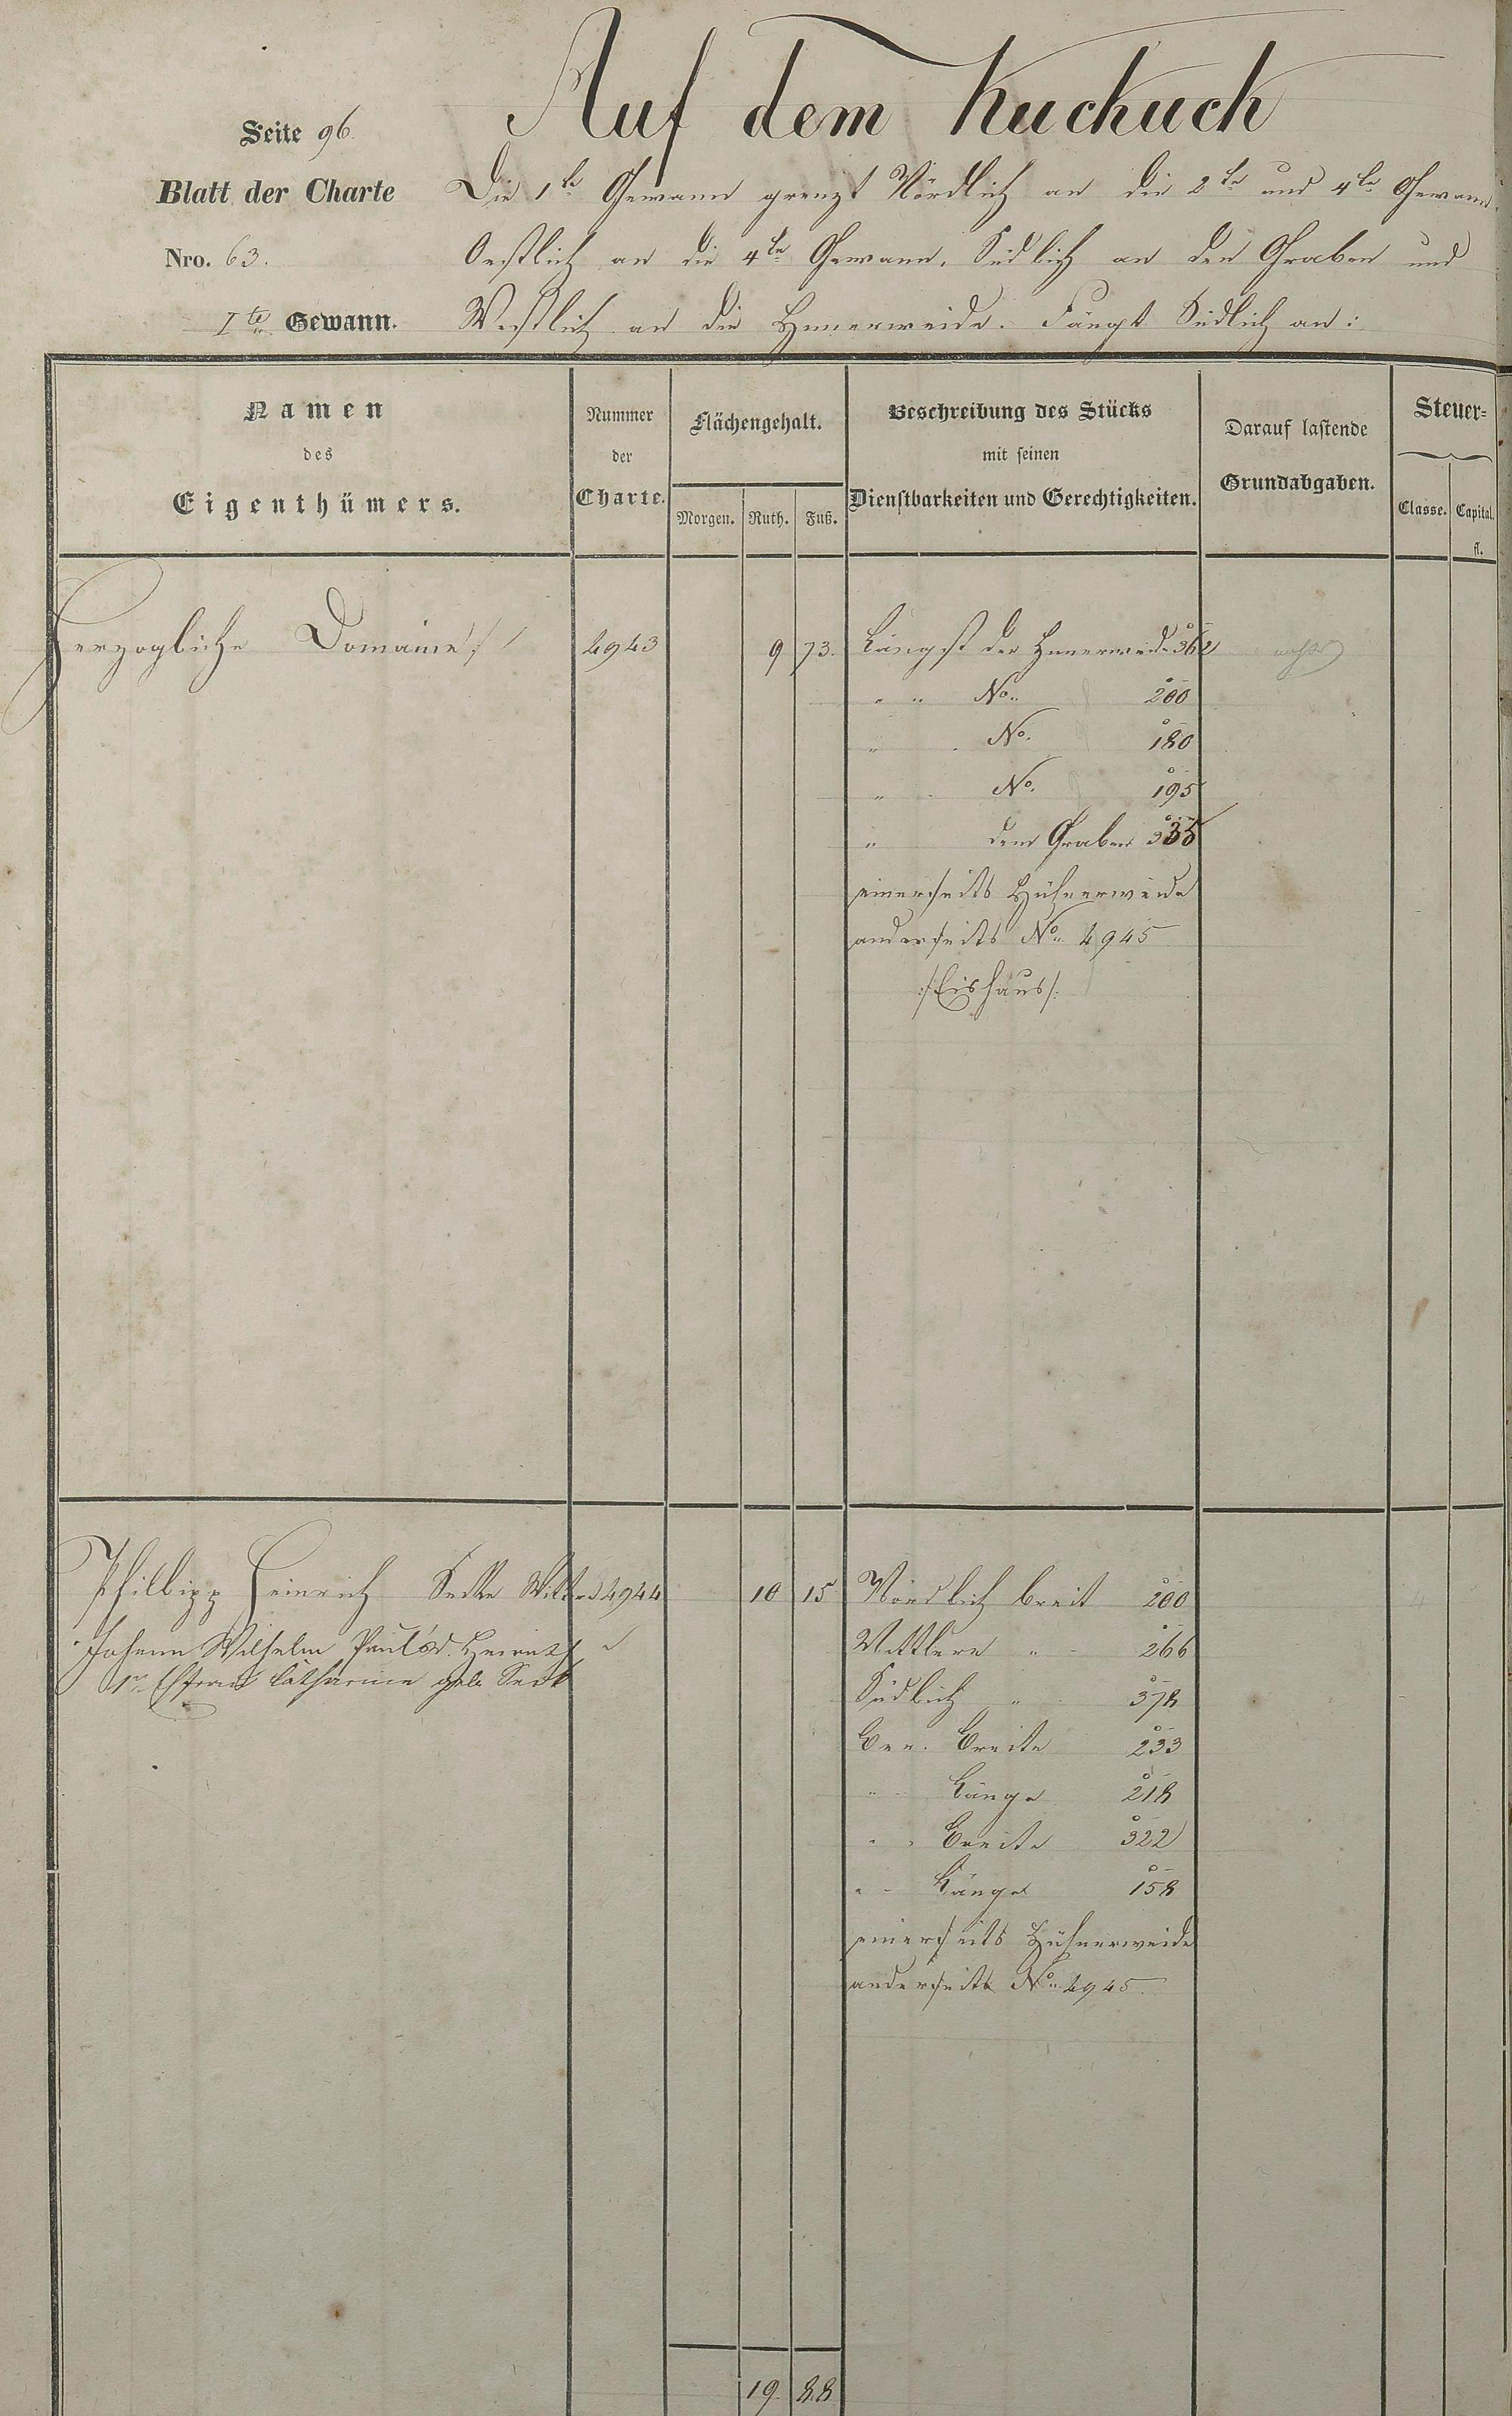 Auf dem Kuckuck
Seite 96.
Blatt der Charte
Nro. 63.
Ite Gewann.
Die 1te Gewann grenzt Nördlich an die 2te und 4te Gewann
Oestlich an die 4te Gewann, Südlich an den Graben und
Westlich an die Hunerweide. Fängt Südlich an:
Namen
des
Eigenthümers.
Nummer
der
Charte.
Flächengehalt.
Morgen. Ruth. Fuß.
Beschreibung des Stücks
mit seinen
Dienstbarkeiten und Gerechtigkeiten.
Darauf lastende
Grundabgaben.
Steuer=
Classe. Capital.
fl.
Herzogliche Domaine 4943 9 73. Längst der Hunerweide 362
" " No. 200
" No. 180
" No. 195
" dem Graben 335
einerseits Hühnerweide
anderseits No. 4945
:/Eishaus/:
Philipp Heinrich 4944 10 15 Nördlich breit 200
Johann Wilhelm Paul's
1r Ehefrau Catharine geb.
Mittlere " 266
Südlich " 378
Ber. Breite 233
" Länge 218
" Breite 322
" Länge 158
einerseits Hühnerweide
anderseits No. 4945.
19. 88